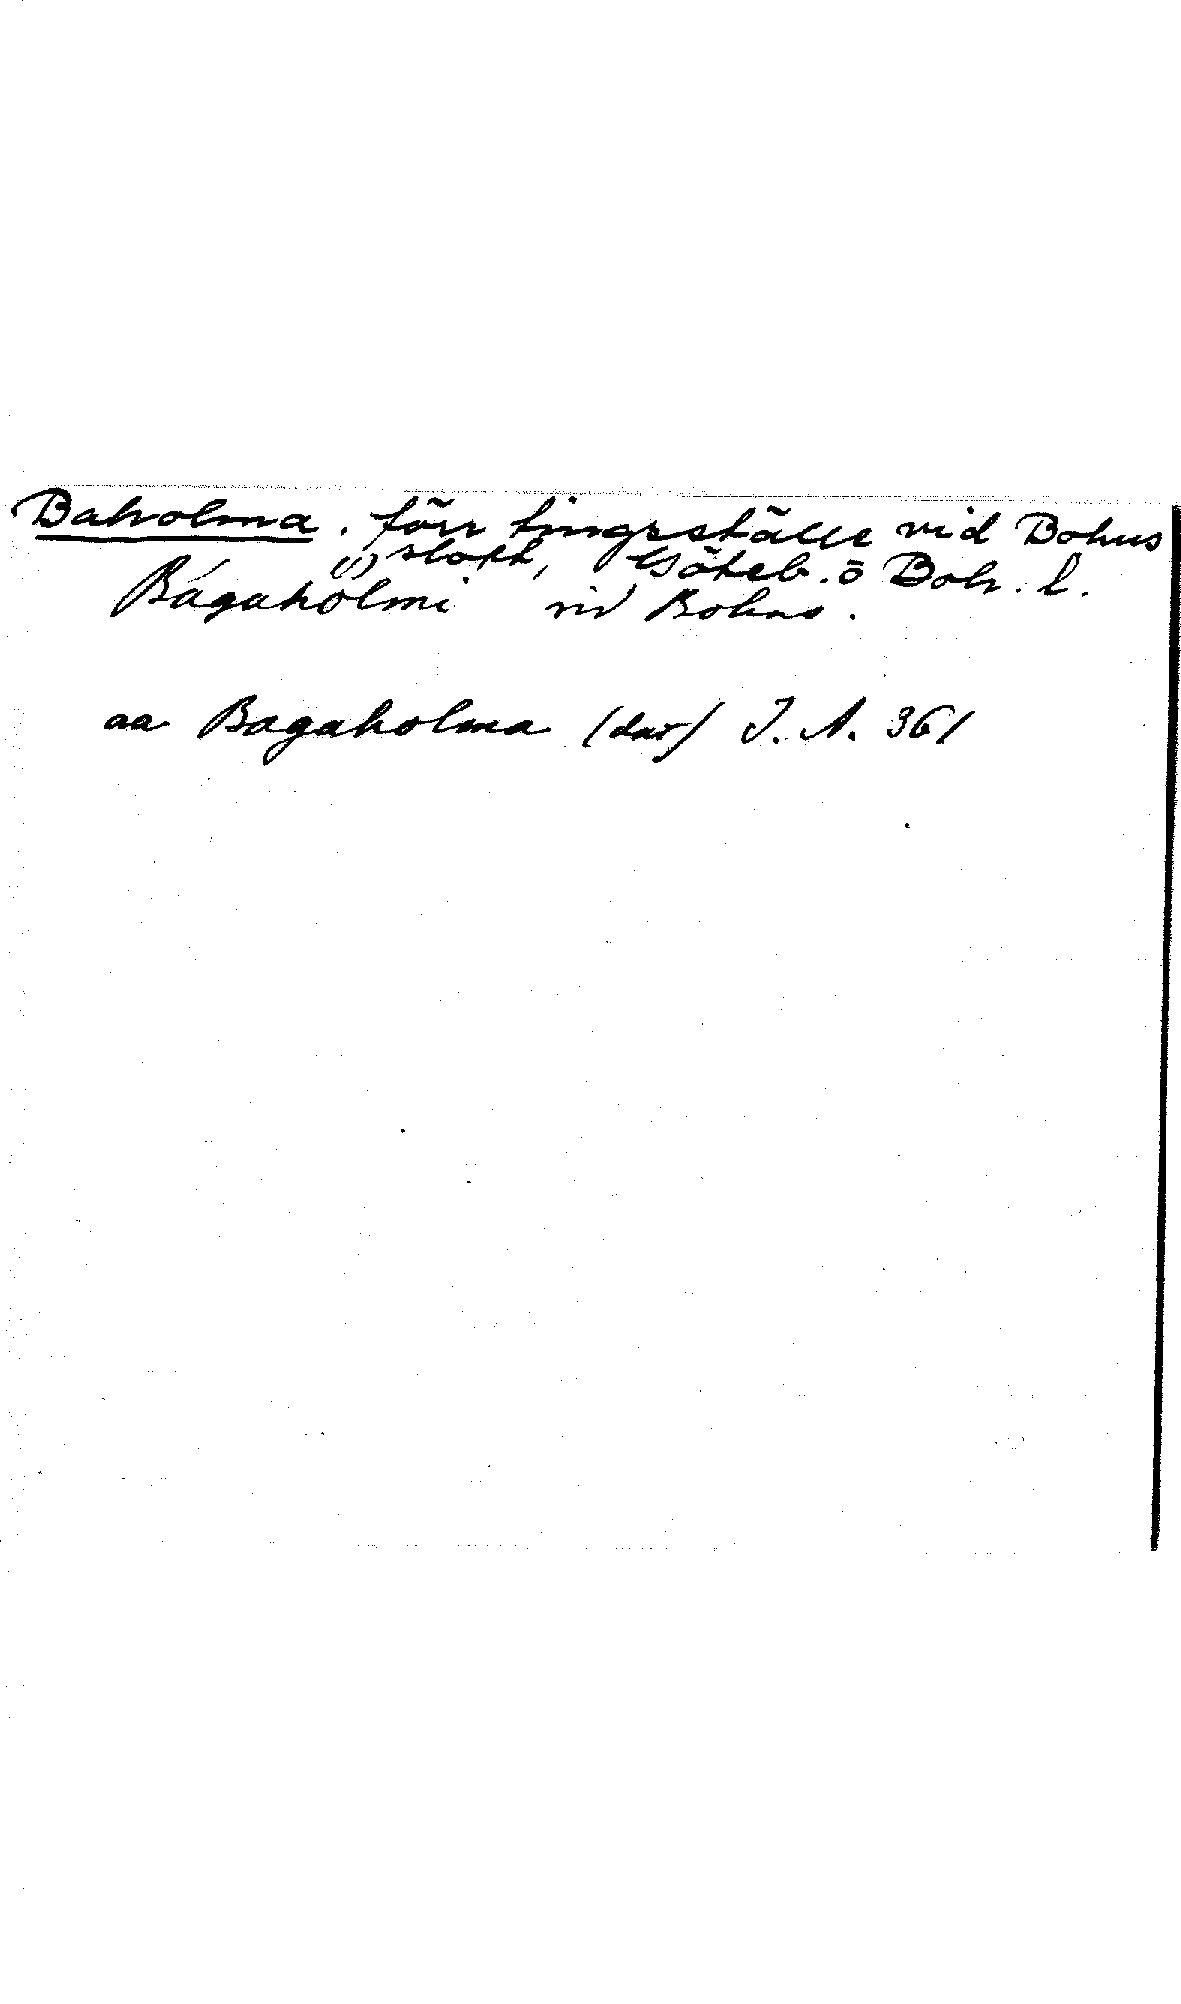 Baholma. förr tingsställe vid Bohus
slott, Göteb. o Boh. l.
Bágahólmi vid Bohus.
aa Bagaholma (dat) I. A. 361